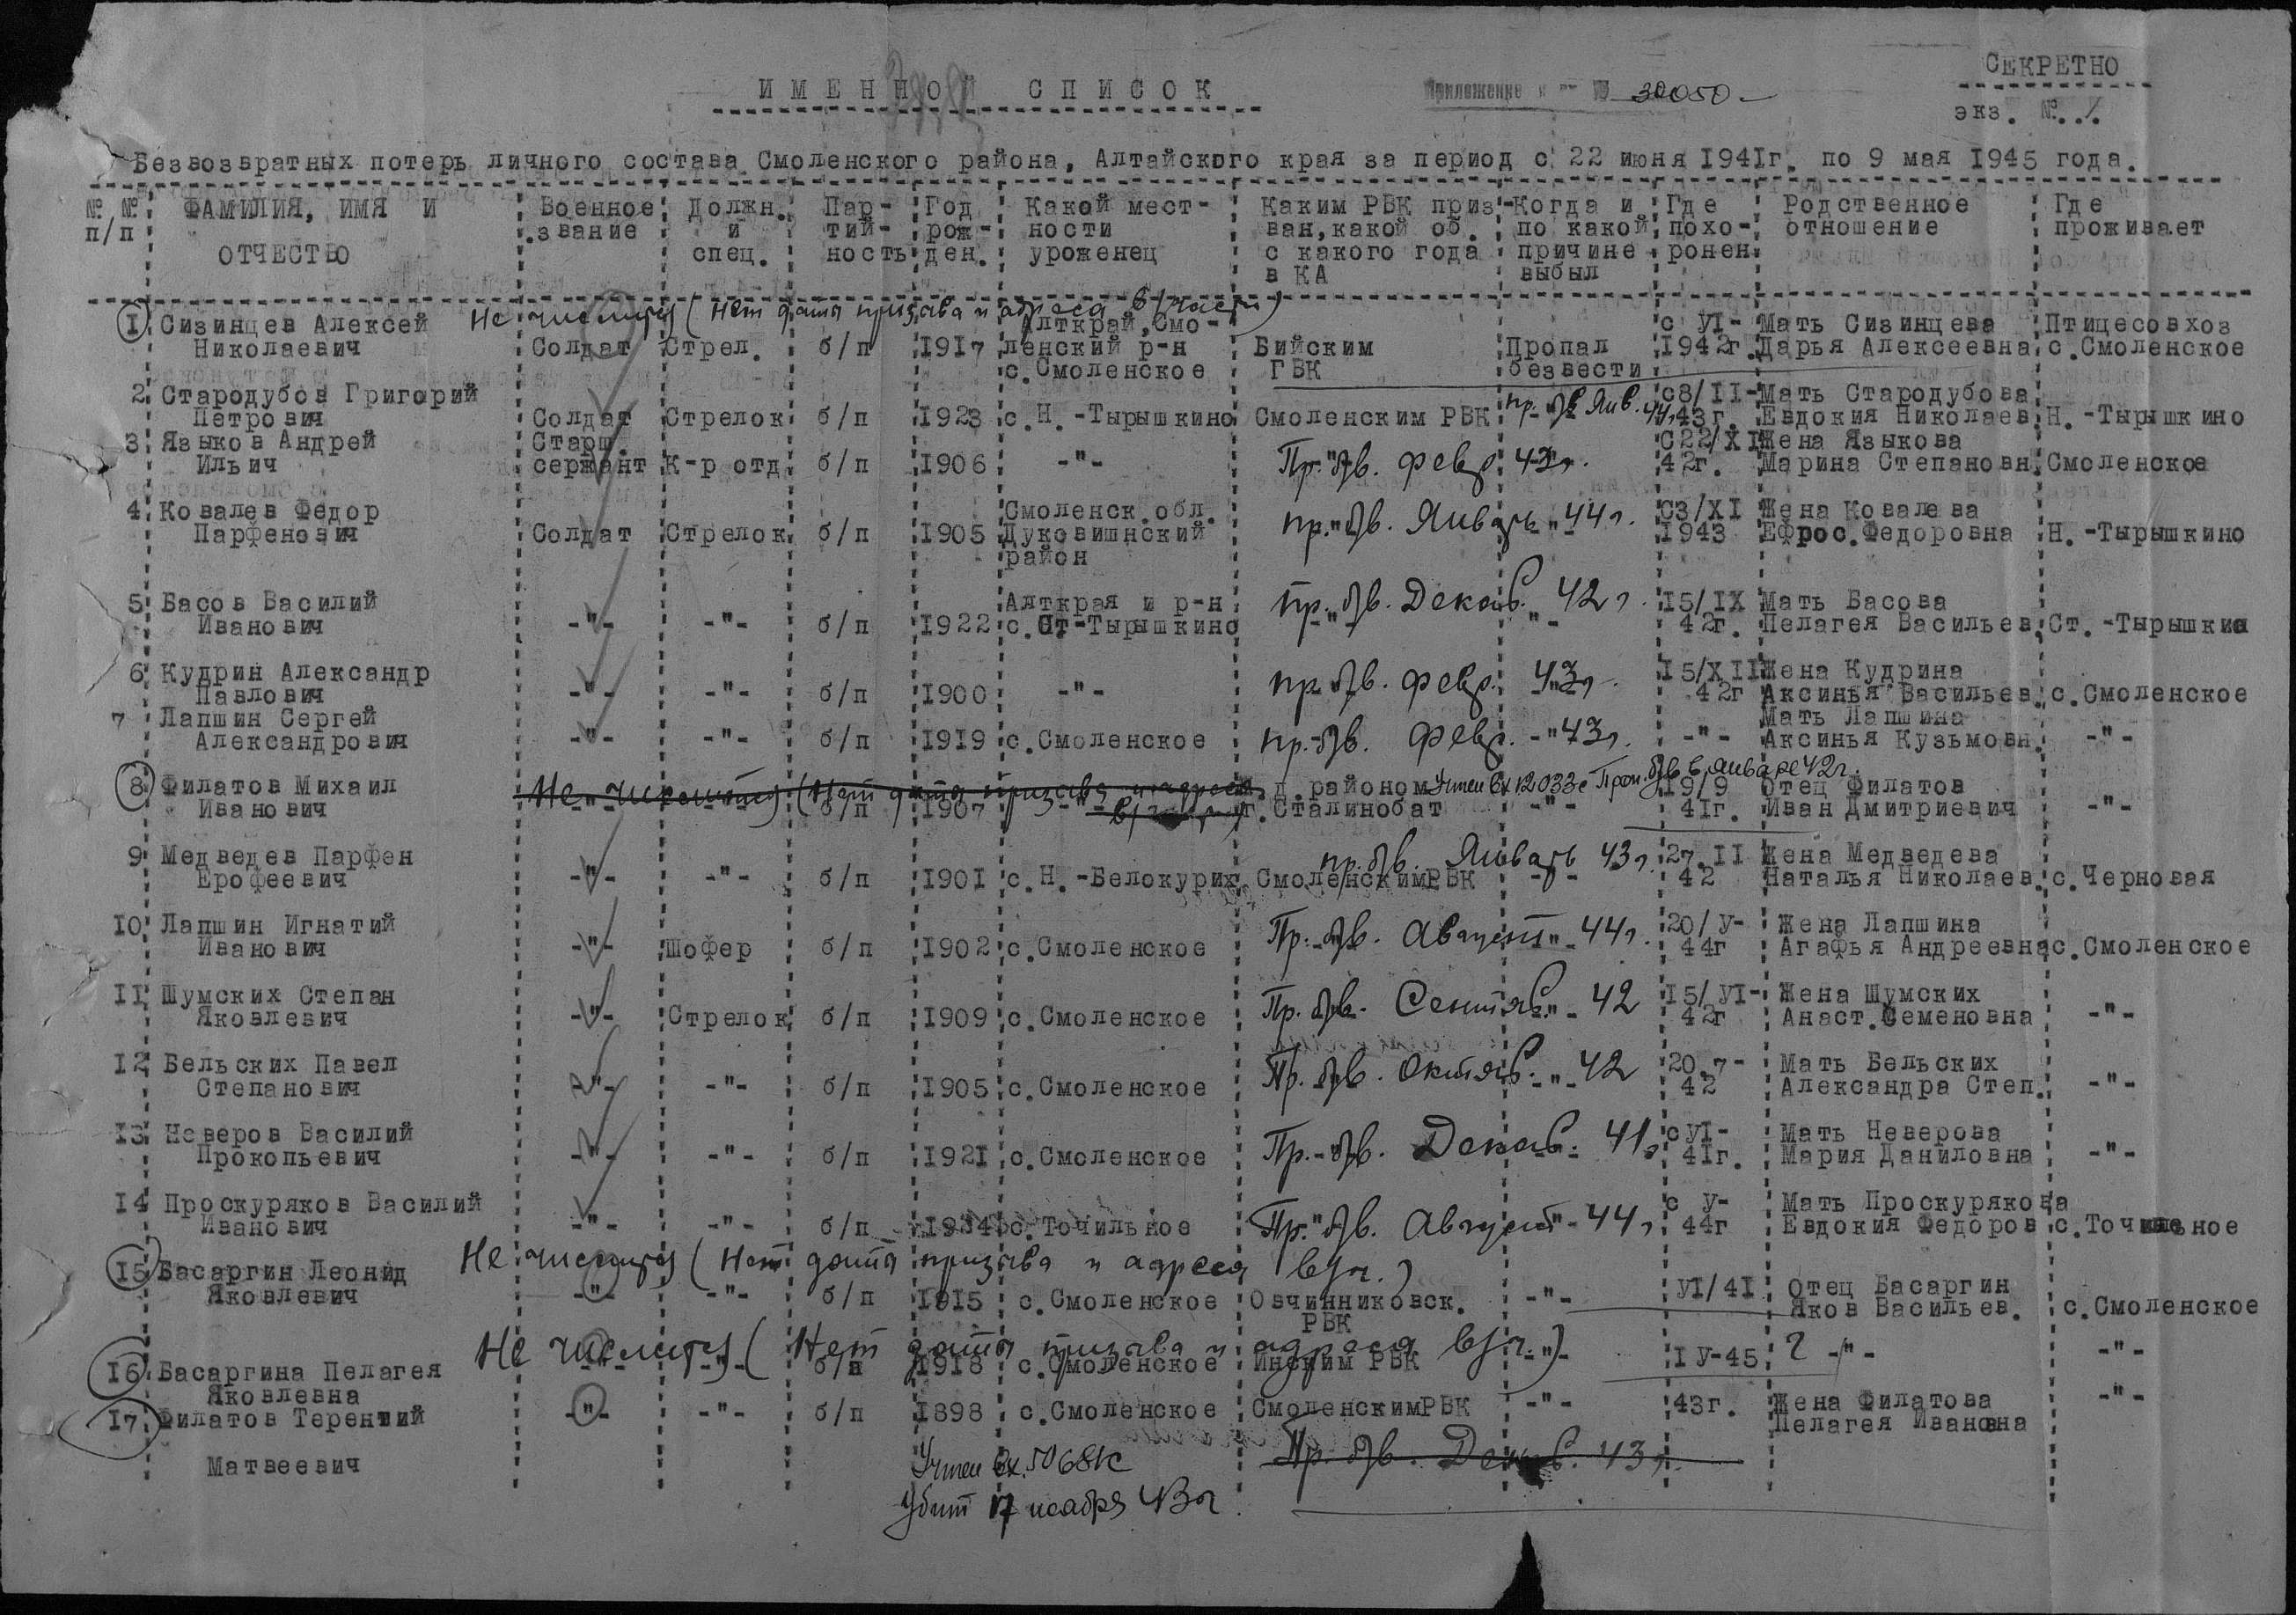 СЕКРЕТНО
ИМЕННОЙ СПИСОК
Приложение к вх № 30050
экз. №.1.
Безвозвратных потерь личного состава Смоленского района, Алтайского края за период с 22 июня 1941г. по 9 мая 1945 года.
№ № п/п ФАМИЛИЯ, ИМЯ И ОТЧЕСТВО Военное звание Должн. и спец. Пар-тий-ность Год рож-ден. Какой мест-ности уроженец Каким РВК приз-ван, какой об. с какого года в КА Когда и по какой причине выбыл Где похо-ронен Родственное отношение Где проживает
Не числится (Нет даты призыва и адреса в/части)
1 Сизинцев Алексей Алткрай, Смо- с УI- Мать Сизинцева Птицесовхоз
Николаевич Солдат Стрел. б/п 1917 ленский р-н Бийским Пропал 1942г. Дарья Алексеевна с.Смоленское
с.Смоленское ГВК безвести
2 Стародубов Григорий пр. б/в Янв. 44г. с8/II- Мать Стародубова
Петрович Солдат Стрелок б/п 1923 с.Н.-Тырышкино Смоленским РВК -"- 43г. Евдокия Николаев. Н.-Тырышкино
3 Языков Андрей Старш. С22/XI Жена Языкова
Ильич сержант К-р отд. б/п 1906 -"- Пр. б/в. февр 43г. 42г. Марина Степановн. Смоленское
4 Ковалев Федор Смоленск.обл. пр. б/в. Январь 44г. С3/XI Жена Ковалева
Парфенович Солдат Стрелок б/п 1905 Духовишнский 1943 Ефрос.Федоровна Н.-Тырышкино
район
5 Басов Василий Алткрая и р-н пр. б/в. Декаб. 42г. I5/IX Мать Басова
Иванович -"- -"- б/п 1922 с.Ст-Тырышкино -"- -"- 42г. Пелагея Васильев. Ст.-Тырышкин
6 Кудрин Александр пр. б/в. февр. 43г. I5/XII Жена Кудрина
Павлович -"- -"- б/п 1900 -"- 42г Аксинья Васильев. с.Смоленское
7 Лапшин Сергей Мать Лапшина
Александрович -"- -"- б/п 1919 с.Смоленское пр. б/в. февр. 43г. -"- Аксинья Кузьмовн. -"-
Не числится (Нет даты призыва и адреса в/части)
8 Филатов Михаил районом Учтен вх 12033с Проп. б/в в январе 42г. 19/9 Отец Филатов
Иванович б/п 1907 -"- г.Сталинобат -"- 41г. Иван Дмитриевич -"-
9 Медведев Парфен пр. б/в. Январь 43г. 27.II Жена Медведева
Ерофеевич -"- -"- б/п 1901 с.Н.-Белокурих. СмоленскимРВК -"- 42 Наталья Николаев. с.Черновая
10 Лапшин Игнатий Пр. б/в. Август 44г. 20/У- Жена Лапшина
Иванович -"- Шофер б/п 1902 с.Смоленское 44г Агафья Андреевна с.Смоленское
11 Шумских Степан Пр. б/в. Сентяб. 42 I5/УI- Жена Шумских
Яковлевич -"- Стрелок б/п 1909 с.Смоленское 42г Анаст.Семеновна -"-
12 Бельских Павел Пр. б/в. Октяб. 42 20.7- Мать Бельских
Степанович -"- -"- б/п 1905 с.Смоленское 42 Александра Степ. -"-
13 Неверов Василий Пр. б/в. Декаб. 41г с УI- Мать Неверова
Прокопьевич -"- -"- б/п 1921 с.Смоленское 41г. Мария Даниловна -"-
14 Проскуряков Василий с У- Мать Проскурякова
Иванович -"- -"- б/п 1934 с.Точильное Пр. б/в. Август 44г 44г Евдокия Федоров с.Точильное
Не числится (Нет даты призыва и адреса в/ч.)
15 Басаргин Леонид УI/41 Отец Басаргин
Яковлевич -"- -"- б/п 1915 с.Смоленское Овчинниковск. РВК -"- Яков Васильев. с.Смоленское
Не числится (Нет даты призыва и адреса в/ч.)
16 Басаргина Пелагея -"- -"- б/п 1918 с.Смоленское Инским РВК -"- IУ-45 ? -"- -"-
Яковлевна
17 Филатов Терентий -"- -"- б/п 1898 с.Смоленское СмоленскимРВК -"- 43г. Жена Филатова -"-
Пелагея Ивановна
Матвеевич Учтен вх. 5068с Пр. б/в. Декаб. 43г.
Убит 17 ноября 43г.